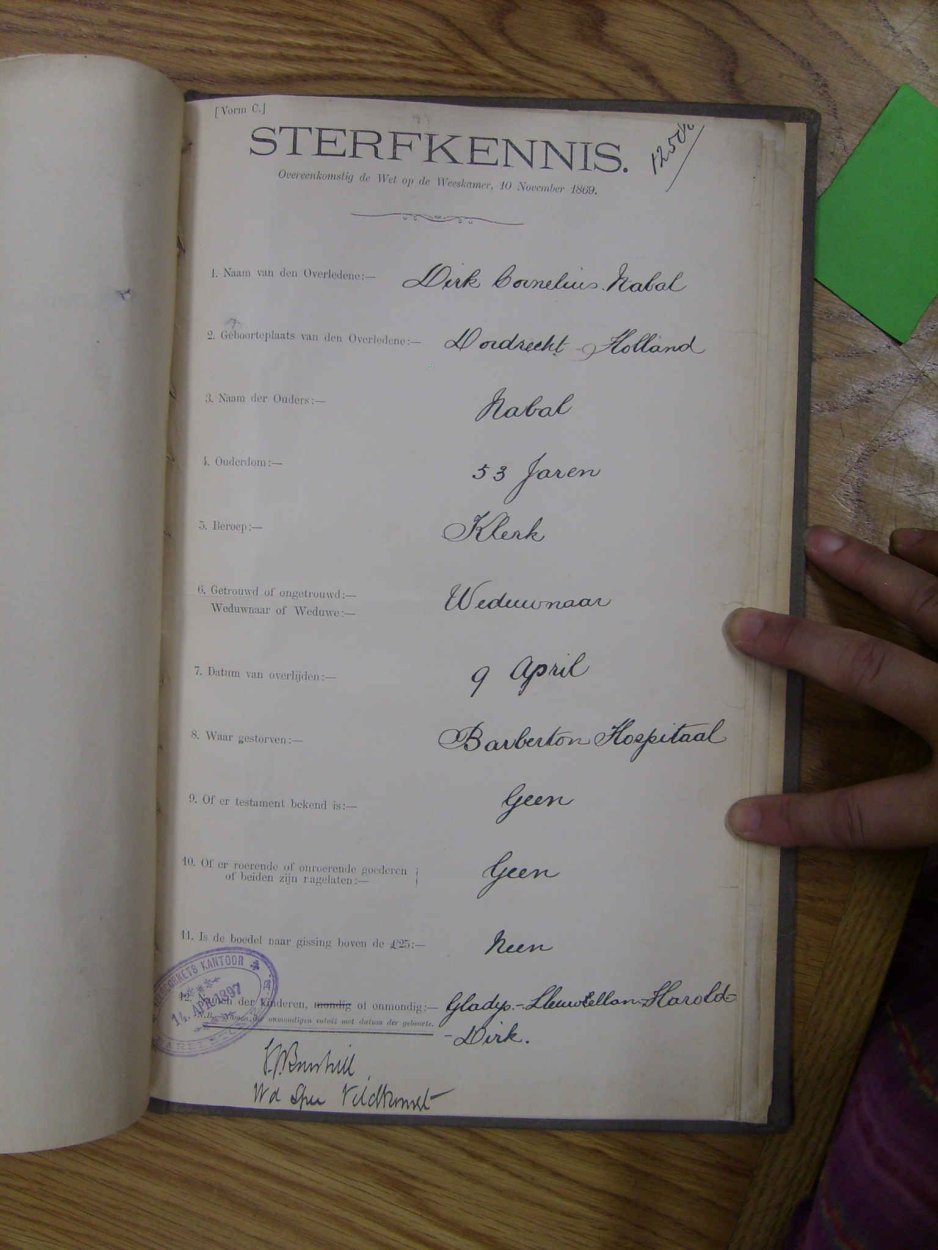 [Vorm C.]
STERFKENNIS.
Overeenkomstig de Wet op de Weeskamer, 10 November 1869.
1. Naam van den Overledene:— Dirk Cornelius Nabal
2. Geboorteplaats van den Overledene:— Dordrecht - Holland
3. Naam der Ouders:— Nabal
4. Ouderdom:— 53 Jaren
5. Beroep:— Klerk
6. Getrouwd of ongetrouwd:—
Weduwnaar of Weduwe:— Weduwnaar
7. Datum van overlijden:— 9 April
8. Waar gestorven:— Barberton Hospitaal
9. Of er testament bekend is:— Geen
10. Of er roerende of onroerende goederen
of beiden zijn nagelaten:— Geen
11. Is de boedel naar gissing boven de £25:— Neen
der kinderen, mondig of onmondig:— Gladys - Lleuwellan - Harold -
onmondigen voluit met datum der geboorte.
- Dirk.
KANTOOR
14. APR 1897
Wd Spec Veldkornet